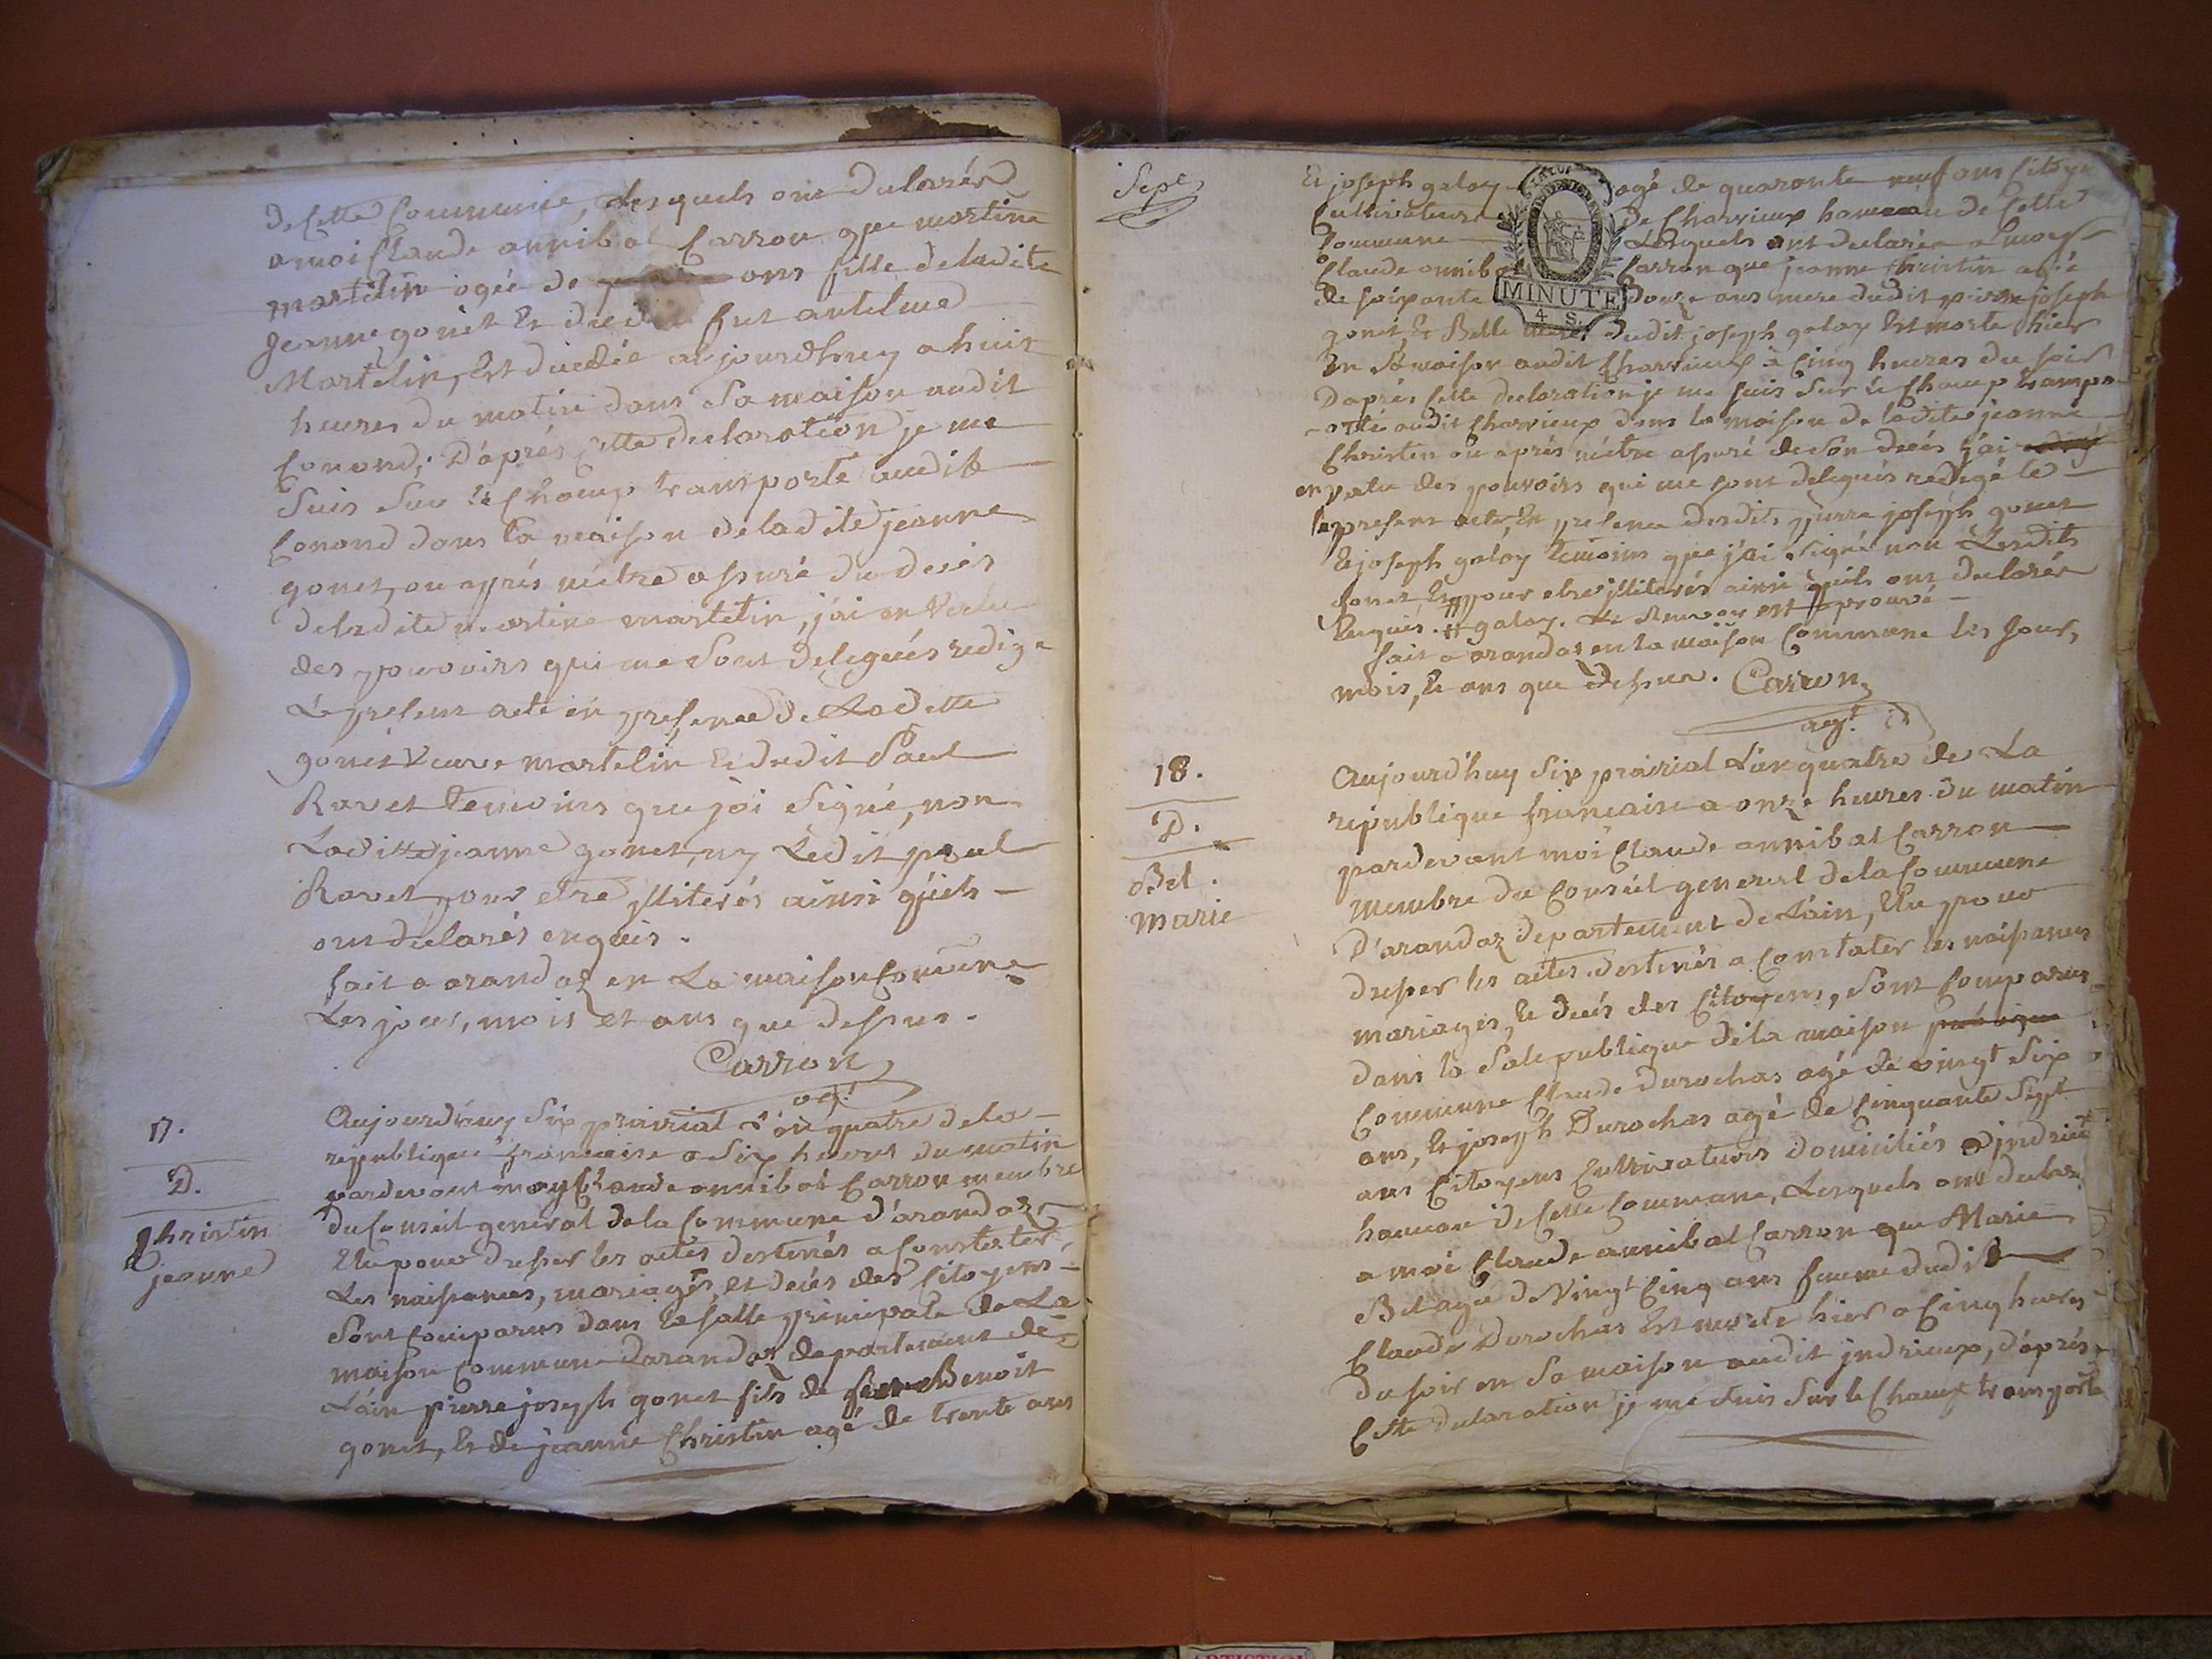 de Cette Commune, Lesquels ont declarés
a moi Claude annibal Carron que martine
martelin agée de ans fille de ladite
Jeanne gonet Et de feu antelme
Martelin, Est decedée aujourdhuy a huit
heures du matin dans Sa maison audit
Conand; D'aprés Cette declaration je me
Suis Sur le Champ transporté audit
Conand dans la maison de ladite jeanne
gonet, ou aprés m'etre assuré du decés
de ladite martine martelin, j'ai en Vertu
des pouvoirs qui me Sont delegués redigé
Le present acte en presence de Laditte
gonet Veuve martelin Et dudit Paul
Ravet temoins que j'ai Signé, non
Laditte jeanne gonet, ny Ledit paul
Ravet pour etre illiterés ainsi qu'ils
ont declarés enquis.
fait a arandaz en La maison Comune
Les jour, mois et ans que dessus.
Carron
agt.
17.
D.
Christin
jeanne
Aujourd'huy Six prairial L'an quatre de la
republique francaise a Six heures du matin
pardevant moy Claude annibal Carron membre
du Conseil general de la Commune d'arandaz
Elu pour dresser les actes destinés a Constater
Les naissances, mariages, et decés des Citoyens
Sont Comparus dans la Salle principale de La
maison Commune darandaz departement de
L'ain pierre joseph gonet fils de Benoit
gonet, Et de jeanne Christin agé de trente ans
Sept
Et joseph galay agé de quarante neuf ans Citoye
Cultivateurs de Charvieux hameau de Cette
Commune Lesquels ont declarés a moy
Claude annibal Carron que jeanne Christin agée
de soixante Douze ans mere dudit pierre joseph
gonet, Et Belle mere dudit joseph galay Est morte hier
MINUTE
4 S.
En Sa maison audit Charvieux à Cinq heures du soir
D'aprés Cette declaration je me suis Sur le Champ transp
orté audit Charvieux dans la maison de ladite jeanne
Christin ou aprés m'etre assuré de Son decés j'ai
en Vertu des pouvoirs qui me sont delegués redigé le
present acte, En presence desdits pierre joseph gonet
Et joseph galay temoins que j'ai Signé non Lesdits
Gonet, Et # pour etre illiterés ainsi qu'ils ont declarés
Enquis. # galay. Le Renvoy est approuvé
fait a arandas en la maison Commune les Jour,
mois, Et ans que dessus. Carron
agt.
18.
D.
Bel.
Marie
Aujourd'huy Six prairial L'an quatre de La
republique francaise a onze heures du matin
pardevant moi Claude annibal Carron
membre du Conseil general de la Commune
D'arandaz departement de L'ain, Elu pour
dresser les actes destinés a Constater les naissances
mariages, Et decés des Citoyens, Sont Comparus
dans la Sale publique de la maison publique
Commune Claude Durochas agé de vingt Six
ans, Et joseph Durochas agé de Cinquante Sept
ans Citoyens Cultivateurs domiciliés a jndrieux
hameau de Cette Commune, Lesquels ont declar
a moi Claude annibal Carron que Marie
Bel agée de Vingt Cinq ans femme dudit
Claude Durochas Est morte hier a Cinq heures
du soir en Sa maison audit jndrieux, d'aprés
Cette declaration je me Suis Sur le Champ transporté